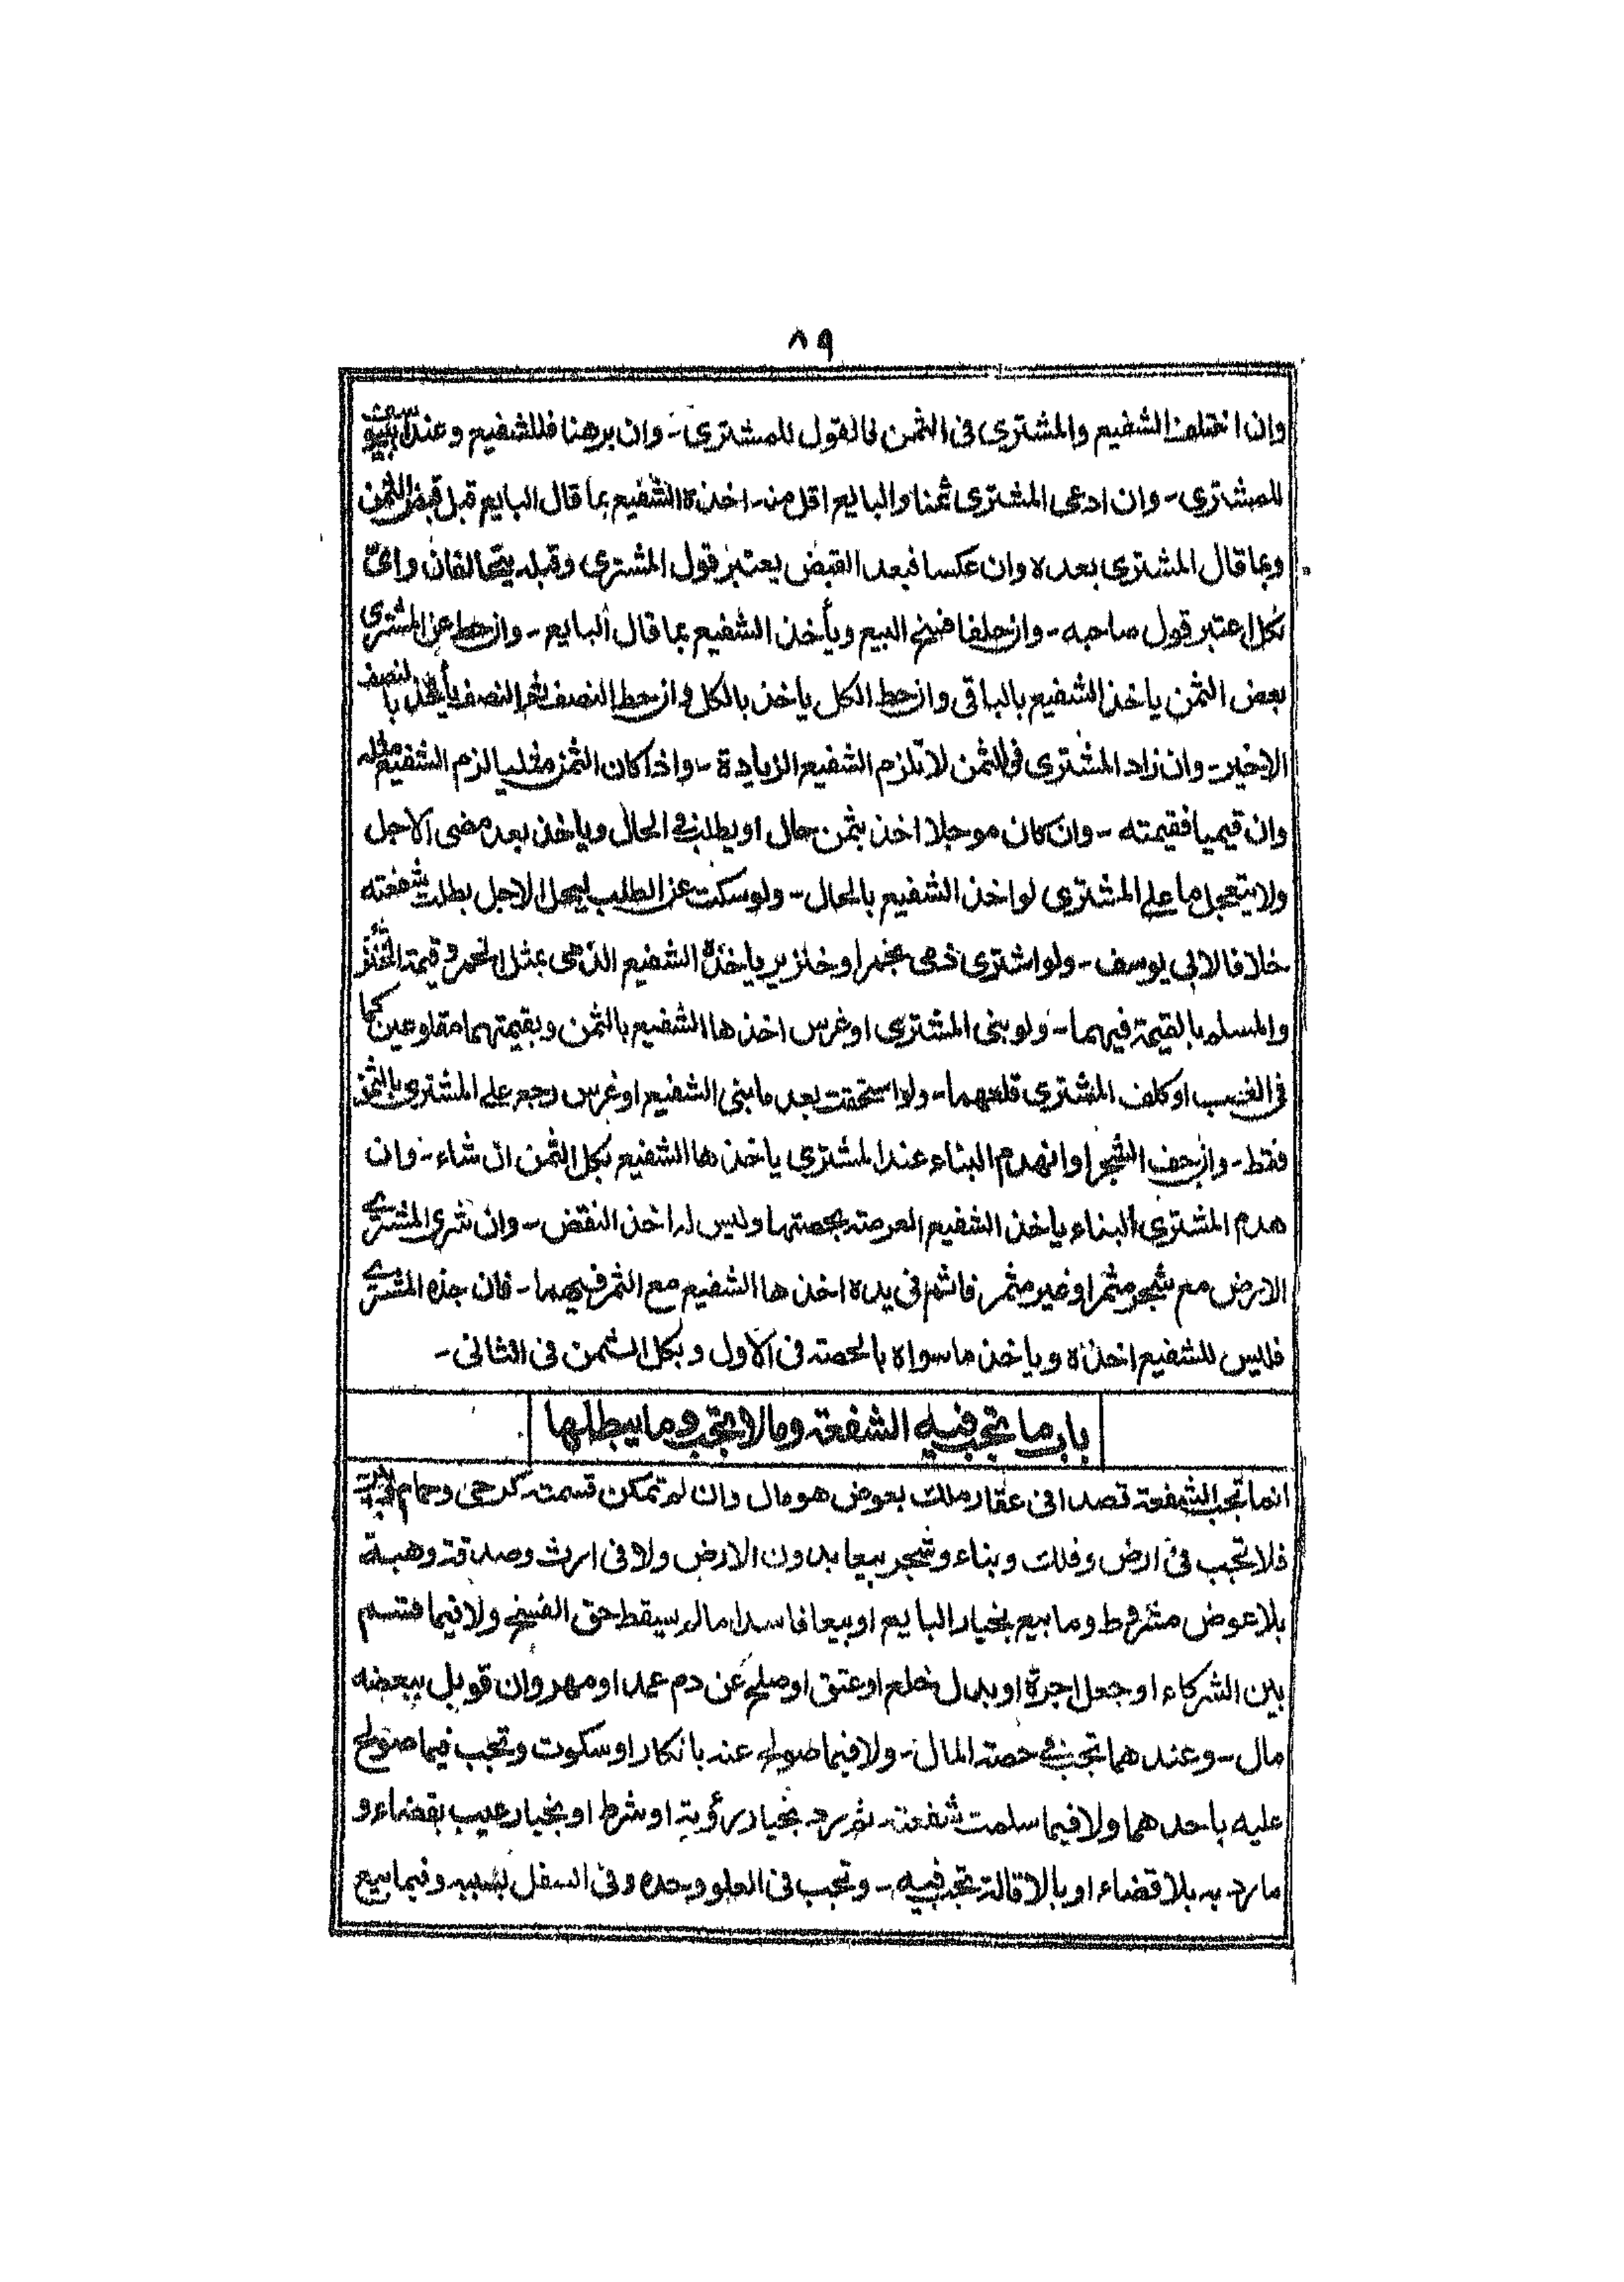 ٨٩
وان اختلف الشفيع والمشترى فى الثمن فالقول للمشترى۔ وان برهنا فللشفيع وعند ابى يوسف
للمشترى۔ وان ادعى المشترى ثمنا والبايع اقل منہ۔ اخذہ الشفيع بما قال البايع قبل قبض الثمن
وبما قال المشترى بعدہ وان عكسا فبعد القبض يعتبر قول المشترى وقبلہ يتحالفان واىّ
نكل اعتبر قول صاحبه۔ وان حلفا فسخ البيع ويأخذ الشفيع بما قال البايع۔ وان حط عن المشترى
بعض الثمن ياخذ الشفيع بالباقى وان حط الكل ياخذ بالكل وان حط النصف ثم النصف يأخذ بالنصف
الاخير۔ وان زاد المشترى فى الثمن لا تلزم الشفيع الزيادة۔ واذا كان الثمن مثليا لزم الشفيع مثلہ
وان قيميا فقيمته۔ وان كان موجلا اخذ بثمن حال او يطلب فى الحال وياخذ بعد مضى الاجل
ولا يتعجل ما على المشترى لو اخذ الشفيع بالحال۔ ولو سكت عن الطلب ليحل الاجل بطلت شفعته
خلافا لابى يوسف۔ ولو اشترى ذمى بخمر او خنزير ياخذہ الشفيع الذمى بمثل الخمر وقيمة الخنزير
والمسلم بالقيمة فيهما۔ ولو بنى المشترى او غرس اخذها الشفيع بالثمن وبقيمتهما مقلوعين كما
فى الغصب او كلف المشترى قلعهما۔ ولو استحقت بعد ما بنى الشفيع او غرس رجع على المشترى بالثمن
فقط۔ وان جف الشجر او انهدم البناء عند المشترى ياخذها الشفيع بكل الثمن ان شاء۔ وان
هدم المشترى البناء ياخذ الشفيع العرصة بحصتها وليس لہ اخذ النقض۔ وان شرى المشترى
الارض مع شجر مثمر او غير مثمر فاثمر فى يدہ اخذها الشفيع مع الثمر فيهما۔ فان جذہ المشترى
فليس للشفيع اخذہ وياخذ ما سواہ بالحصة فى الاول وبكل الثمن فى الثانى۔
باب ما تجب فيه الشفعة وما لا تجب وما يبطلها
انما تجب الشفعة قصدا فى عقار ملك بعوض هو مال وان لم تمكن قسمتہ كرحى وحمام
فلا تجب فى ارض وفلك وبناء وشجر بيعا بدون الارض ولا فى ارث وصدقة وهبة
بلا عوض مشروط وما بيع بخيار البايع او بيعا فاسدا ما لم يسقط حق الفسخ ولا فيما قسم
بين الشركاء او جعل اجرة او بدل خلع او عتق او صلح عن دم عمد او مهر وان قوبل ببعضه
مال۔ وعندهما تجب فى حصة المال۔ ولا فيما صولح عنہ بانكار او سكوت وتجب فيما صولح
عليه باحدهما ولا فيما سلمت شفعتہ۔ ثم رد بخيار رؤية او شرط او بخيار عيب بقضاء و
ما رد بہ بلا قضاء او بالاقالة تجب فيه۔ وتجب فى العلو وحدہ وفى السفل بسببہ وفيما بيع